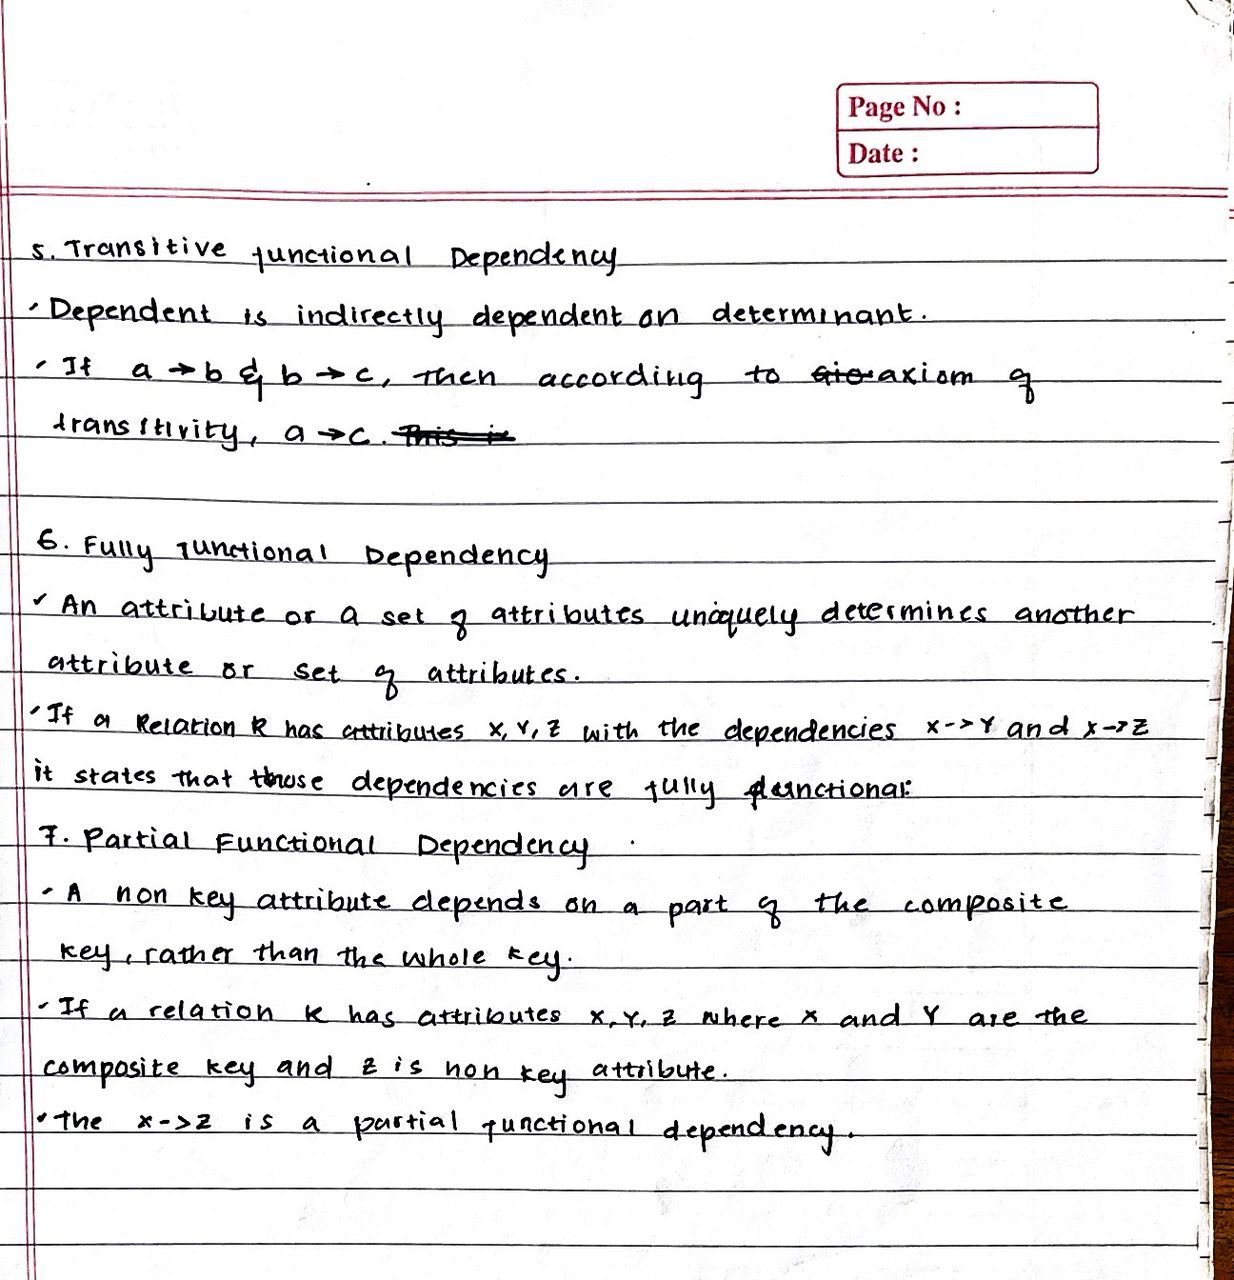 Page No :
Date :
5. Transitive functional Dependency
• Dependent is indirectly dependent on determinant.
• If a → b & b → c, then according to axiom of
transitivity, a → c. This is
6. Fully functional Dependency
• An attribute or a set of attributes uniquely determines another
attribute or set of attributes.
• If a Relation R has attributes X, Y, Z with the dependencies X->Y and X->Z
it states that those dependencies are fully functional.
7. Partial Functional Dependency
• A non key attribute depends on a part of the composite
key, rather than the whole key.
• If a relation R has attributes X, Y, Z where X and Y are the
composite key and Z is non key attribute.
• The X->Z is a partial functional dependency.